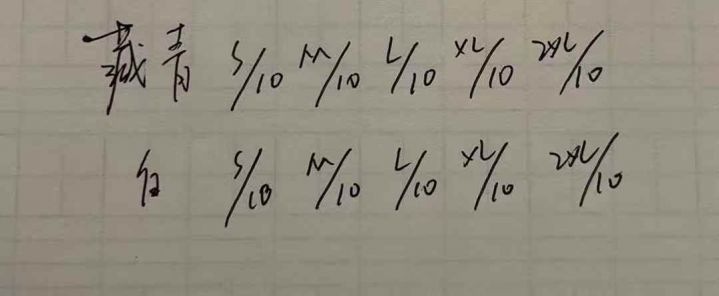 藏青 S/10 M/10 L/10 XL/10 2XL/10
白 S/10 M/10 L/10 XL/10 2XL/10